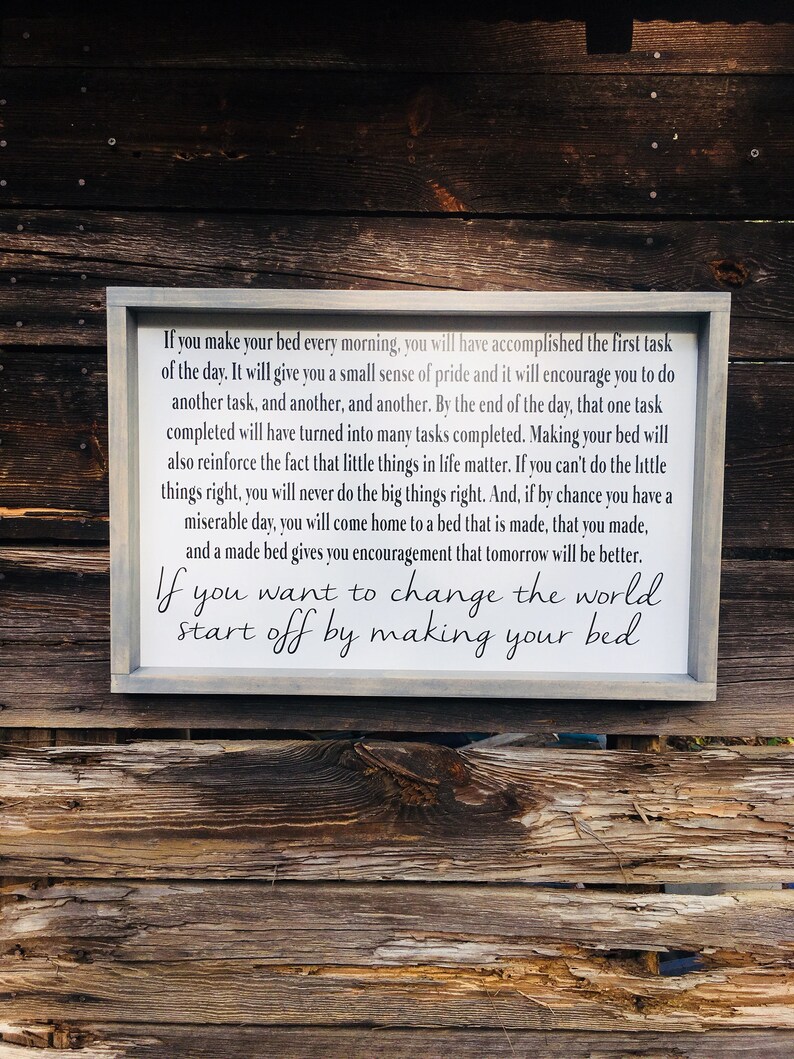 If you make your bed every morning, you will have accomplished the first task
of the day. It will give you a small sense of pride and it will encourage you to do
another task, and another, and another. By the end of the day, that one task
completed will have turned into many tasks completed. Making your bed will
also reinforce the fact that little things in life matter. If you can't do the little
things right, you will never do the big things right. And, if by chance you have a
miserable day, you will come home to a bed that is made, that you made,
and a made bed gives you encouragement that tomorrow will be better.
If you want to change the world
start off by making your bed